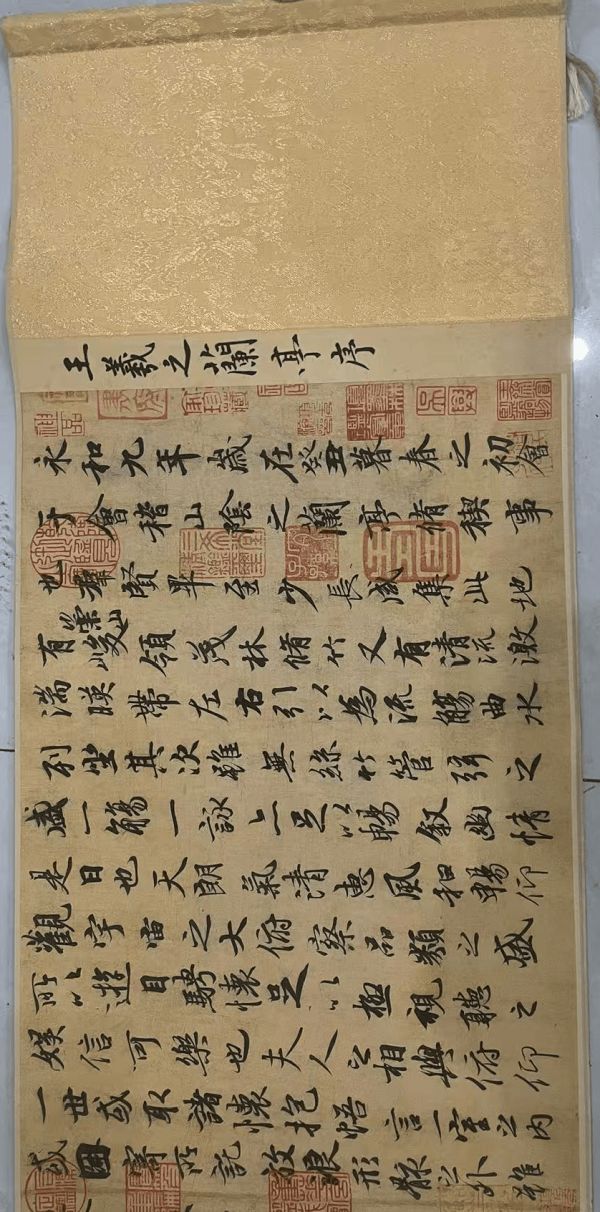 王羲之蘭亭序
永和九年歲在癸丑暮春之初會
于會稽山陰之蘭亭脩禊事
也群賢畢至少長咸集此地
有崇山峻領茂林脩竹又有清流激
湍暎帶左右引以為流觴曲水
列坐其次雖無絲竹管弦之
盛一觴一詠亦足以暢敘幽情
是日也天朗氣清惠風和暢仰
觀宇宙之大俯察品類之盛
所以遊目騁懷足以極視聽之
娛信可樂也夫人之相與俯仰
一世或取諸懷抱悟言一室之內
或因寄所託放浪形骸之外雖